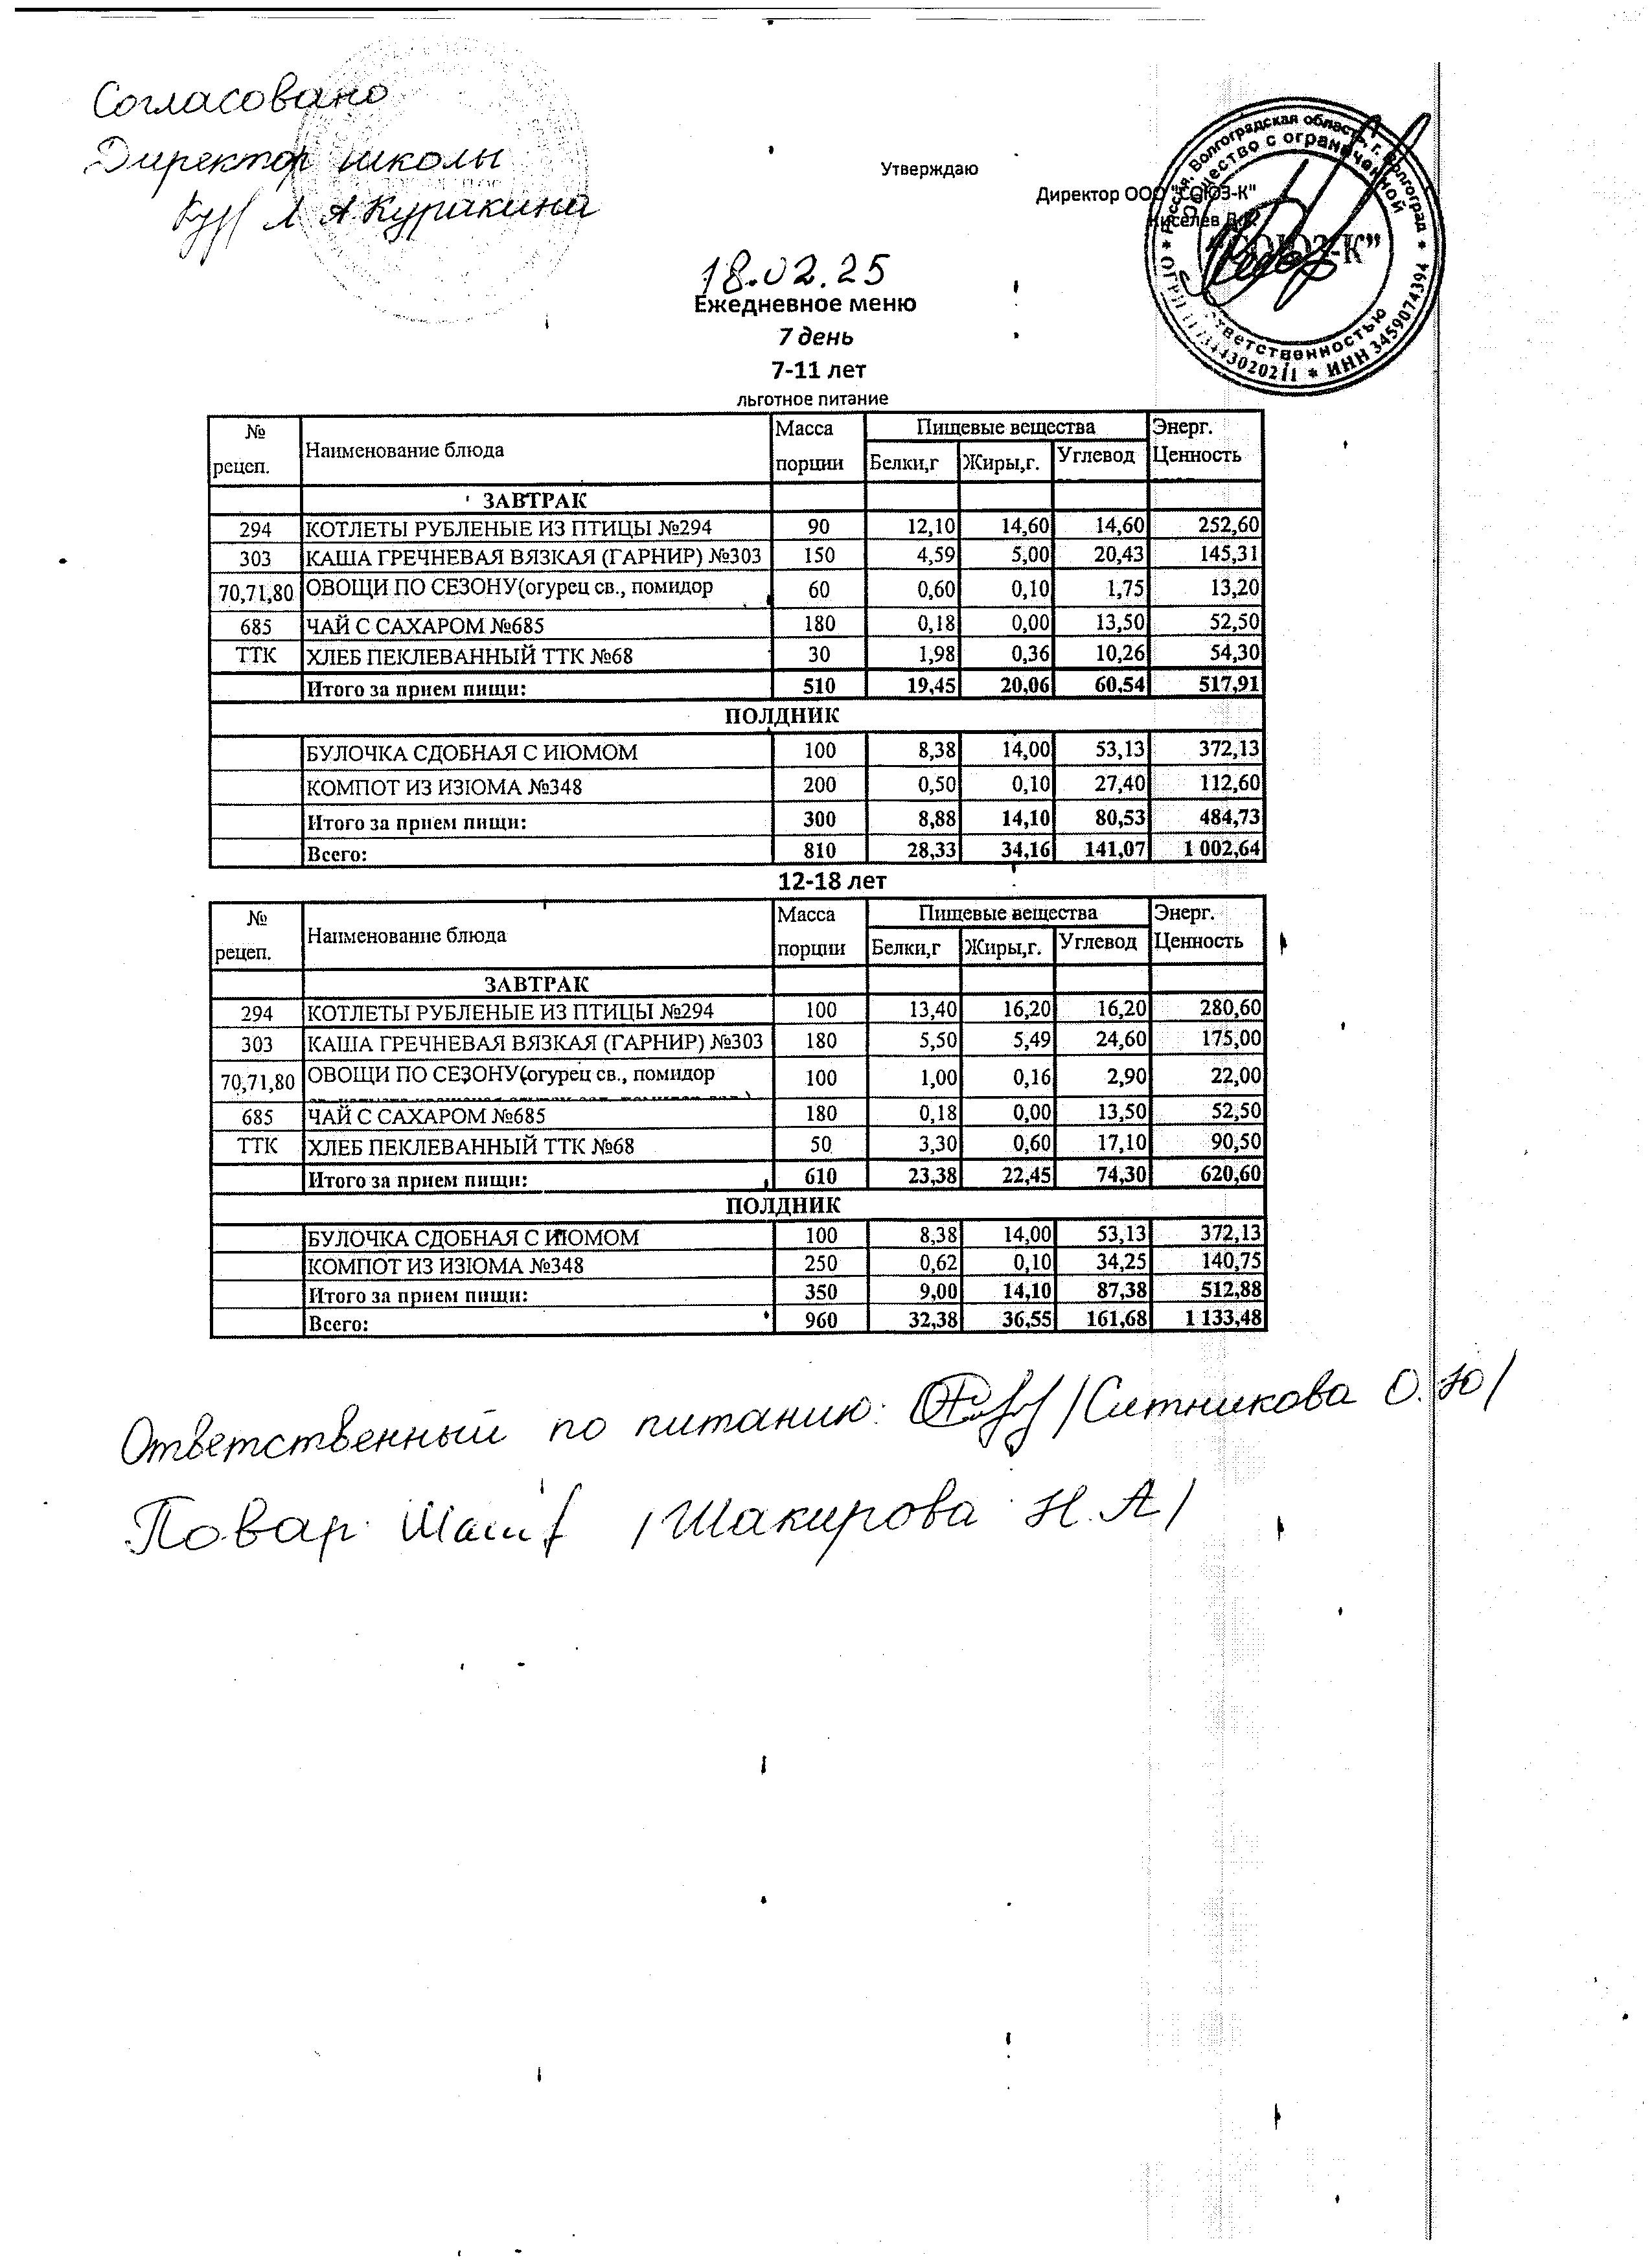 Согласовано
Директор школы
Л А Куракина
Утверждаю
Директор ООО "СОЮЗ-К"
Киселев
Россия, Волгоградская область, г. Волгоград
Общество с ограниченной
ответственностью
"СОЮЗ-К"
ИНН 3459074394
18.02.25
Ежедневное меню
7 день
7-11 лет
льготное питание
№ рецеп. Наименование блюда Масса порции Пищевые вещества Энерг. Ценность
Белки,г Жиры,г. Углевод
ЗАВТРАК
294 КОТЛЕТЫ РУБЛЕНЫЕ ИЗ ПТИЦЫ №294 90 12,10 14,60 14,60 252,60
303 КАША ГРЕЧНЕВАЯ ВЯЗКАЯ (ГАРНИР) №303 150 4,59 5,00 20,43 145,31
70,71,80 ОВОЩИ ПО СЕЗОНУ(огурец св., помидор 60 0,60 0,10 1,75 13,20
685 ЧАЙ С САХАРОМ №685 180 0,18 0,00 13,50 52,50
ТТК ХЛЕБ ПЕКЛЕВАННЫЙ ТТК №68 30 1,98 0,36 10,26 54,30
Итого за прием пищи: 510 19,45 20,06 60,54 517,91
ПОЛДНИК
БУЛОЧКА СДОБНАЯ С ИЮМОМ 100 8,38 14,00 53,13 372,13
КОМПОТ ИЗ ИЗЮМА №348 200 0,50 0,10 27,40 112,60
Итого за прием пищи: 300 8,88 14,10 80,53 484,73
Всего: 810 28,33 34,16 141,07 1 002,64
12-18 лет
№ рецеп. Наименование блюда Масса порции Пищевые вещества Энерг. Ценность
Белки,г Жиры,г. Углевод
ЗАВТРАК
294 КОТЛЕТЫ РУБЛЕНЫЕ ИЗ ПТИЦЫ №294 100 13,40 16,20 16,20 280,60
303 КАША ГРЕЧНЕВАЯ ВЯЗКАЯ (ГАРНИР) №303 180 5,50 5,49 24,60 175,00
70,71,80 ОВОЩИ ПО СЕЗОНУ(огурец св., помидор 100 1,00 0,16 2,90 22,00
685 ЧАЙ С САХАРОМ №685 180 0,18 0,00 13,50 52,50
ТТК ХЛЕБ ПЕКЛЕВАННЫЙ ТТК №68 50 3,30 0,60 17,10 90,50
Итого за прием пищи: 610 23,38 22,45 74,30 620,60
ПОЛДНИК
БУЛОЧКА СДОБНАЯ С ИЮМОМ 100 8,38 14,00 53,13 372,13
КОМПОТ ИЗ ИЗЮМА №348 250 0,62 0,10 34,25 140,75
Итого за прием пищи: 350 9,00 14,10 87,38 512,88
Всего: 960 32,38 36,55 161,68 1 133,48
Ответственный по питанию: /Ситникова О.Ю/
Повар: /Шакирова Н.А/